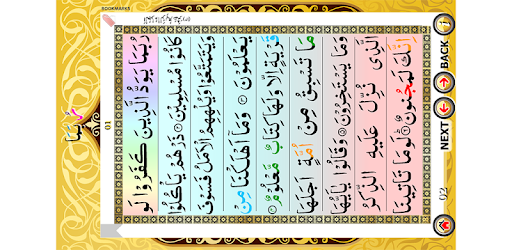 BOOKMARKS
رُبَمَا
01
رُبَمَا يَوَدُّ الَّذِيْنَ كَفَرُوْا لَوْ
كَانُوْا مُسْلِمِيْنَ ۝۲ ذَرْهُمْ يَاْكُلُوْا
وَيَتَمَتَّعُوْا وَيُلْهِهِمُ الْاَمَلُ فَسَوْفَ
يَعْلَمُوْنَ ۝۳ وَمَاۤ اَهْلَكْنَا مِنْ
قَرْيَةٍ اِلَّا وَلَهَا كِتَابٌ مَّعْلُوْمٌ ۝۴
مَا تَسْبِقُ مِنْ اُمَّةٍ اَجَلَهَا
وَمَا يَسْتَاْخِرُوْنَ ۝۵ وَقَالُوْا يٰۤاَيُّهَا
الَّذِيْ نُزِّلَ عَلَيْهِ الذِّكْرُ
اِنَّكَ لَمَجْنُوْنٌ ۝۶ لَوْمَا تَاْتِيْنَا
02
NEXT
BACK